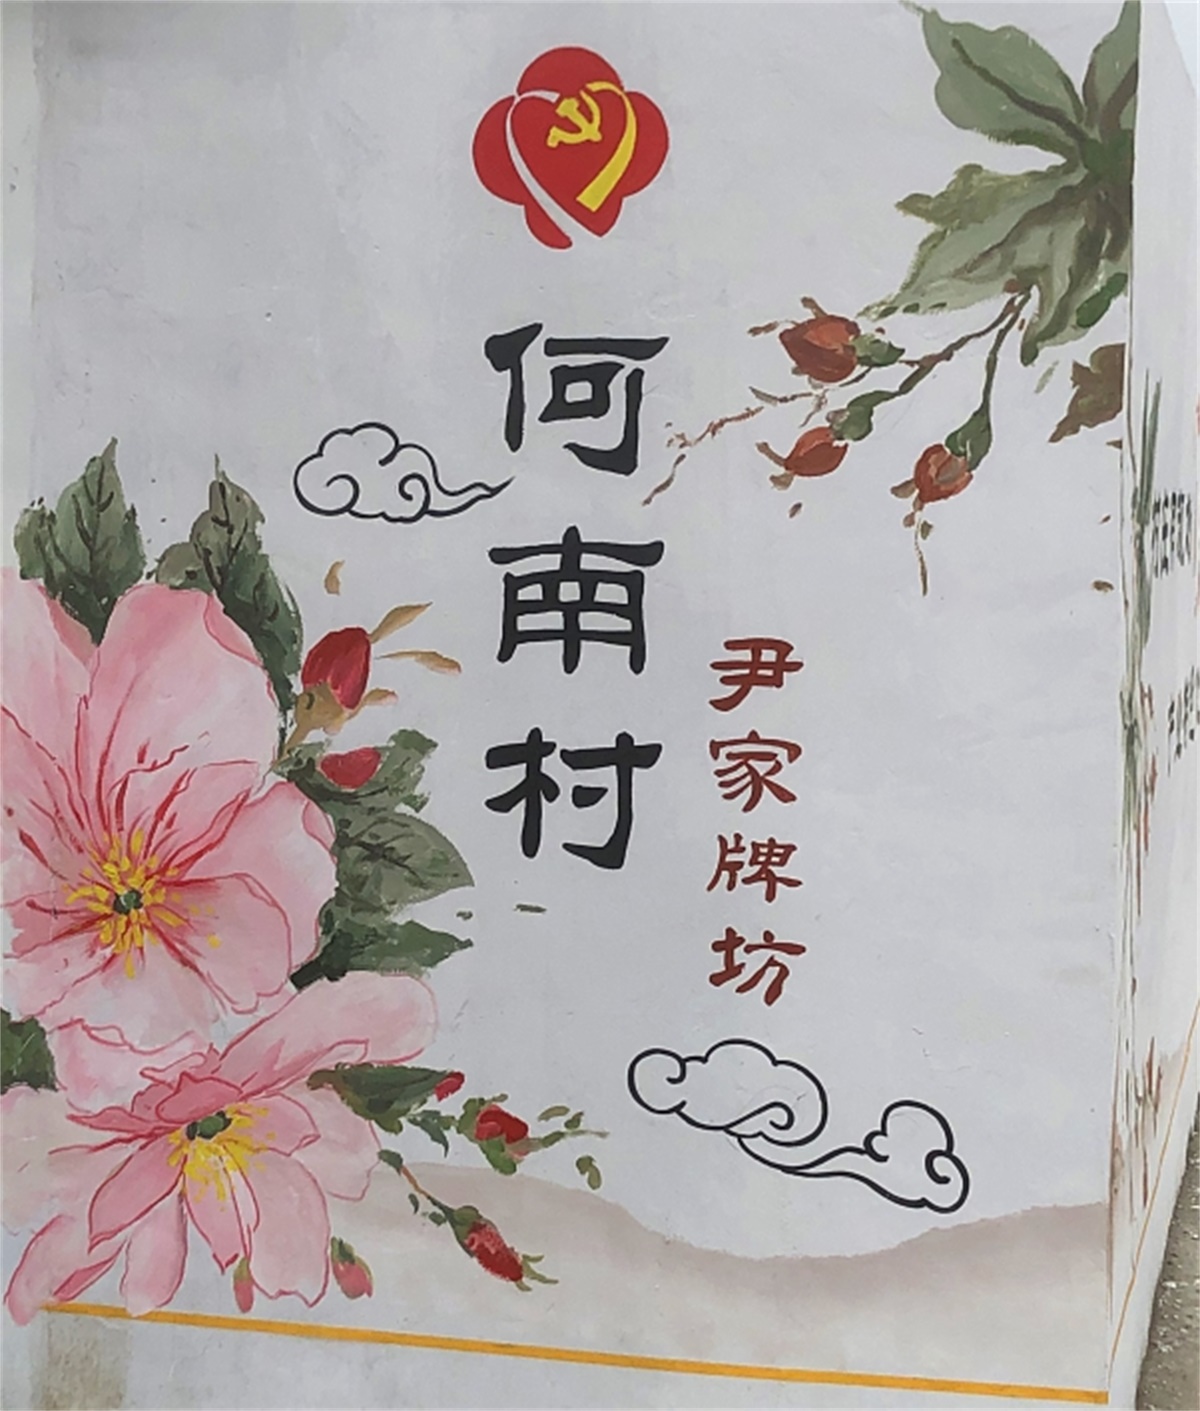 何南村
尹家牌坊